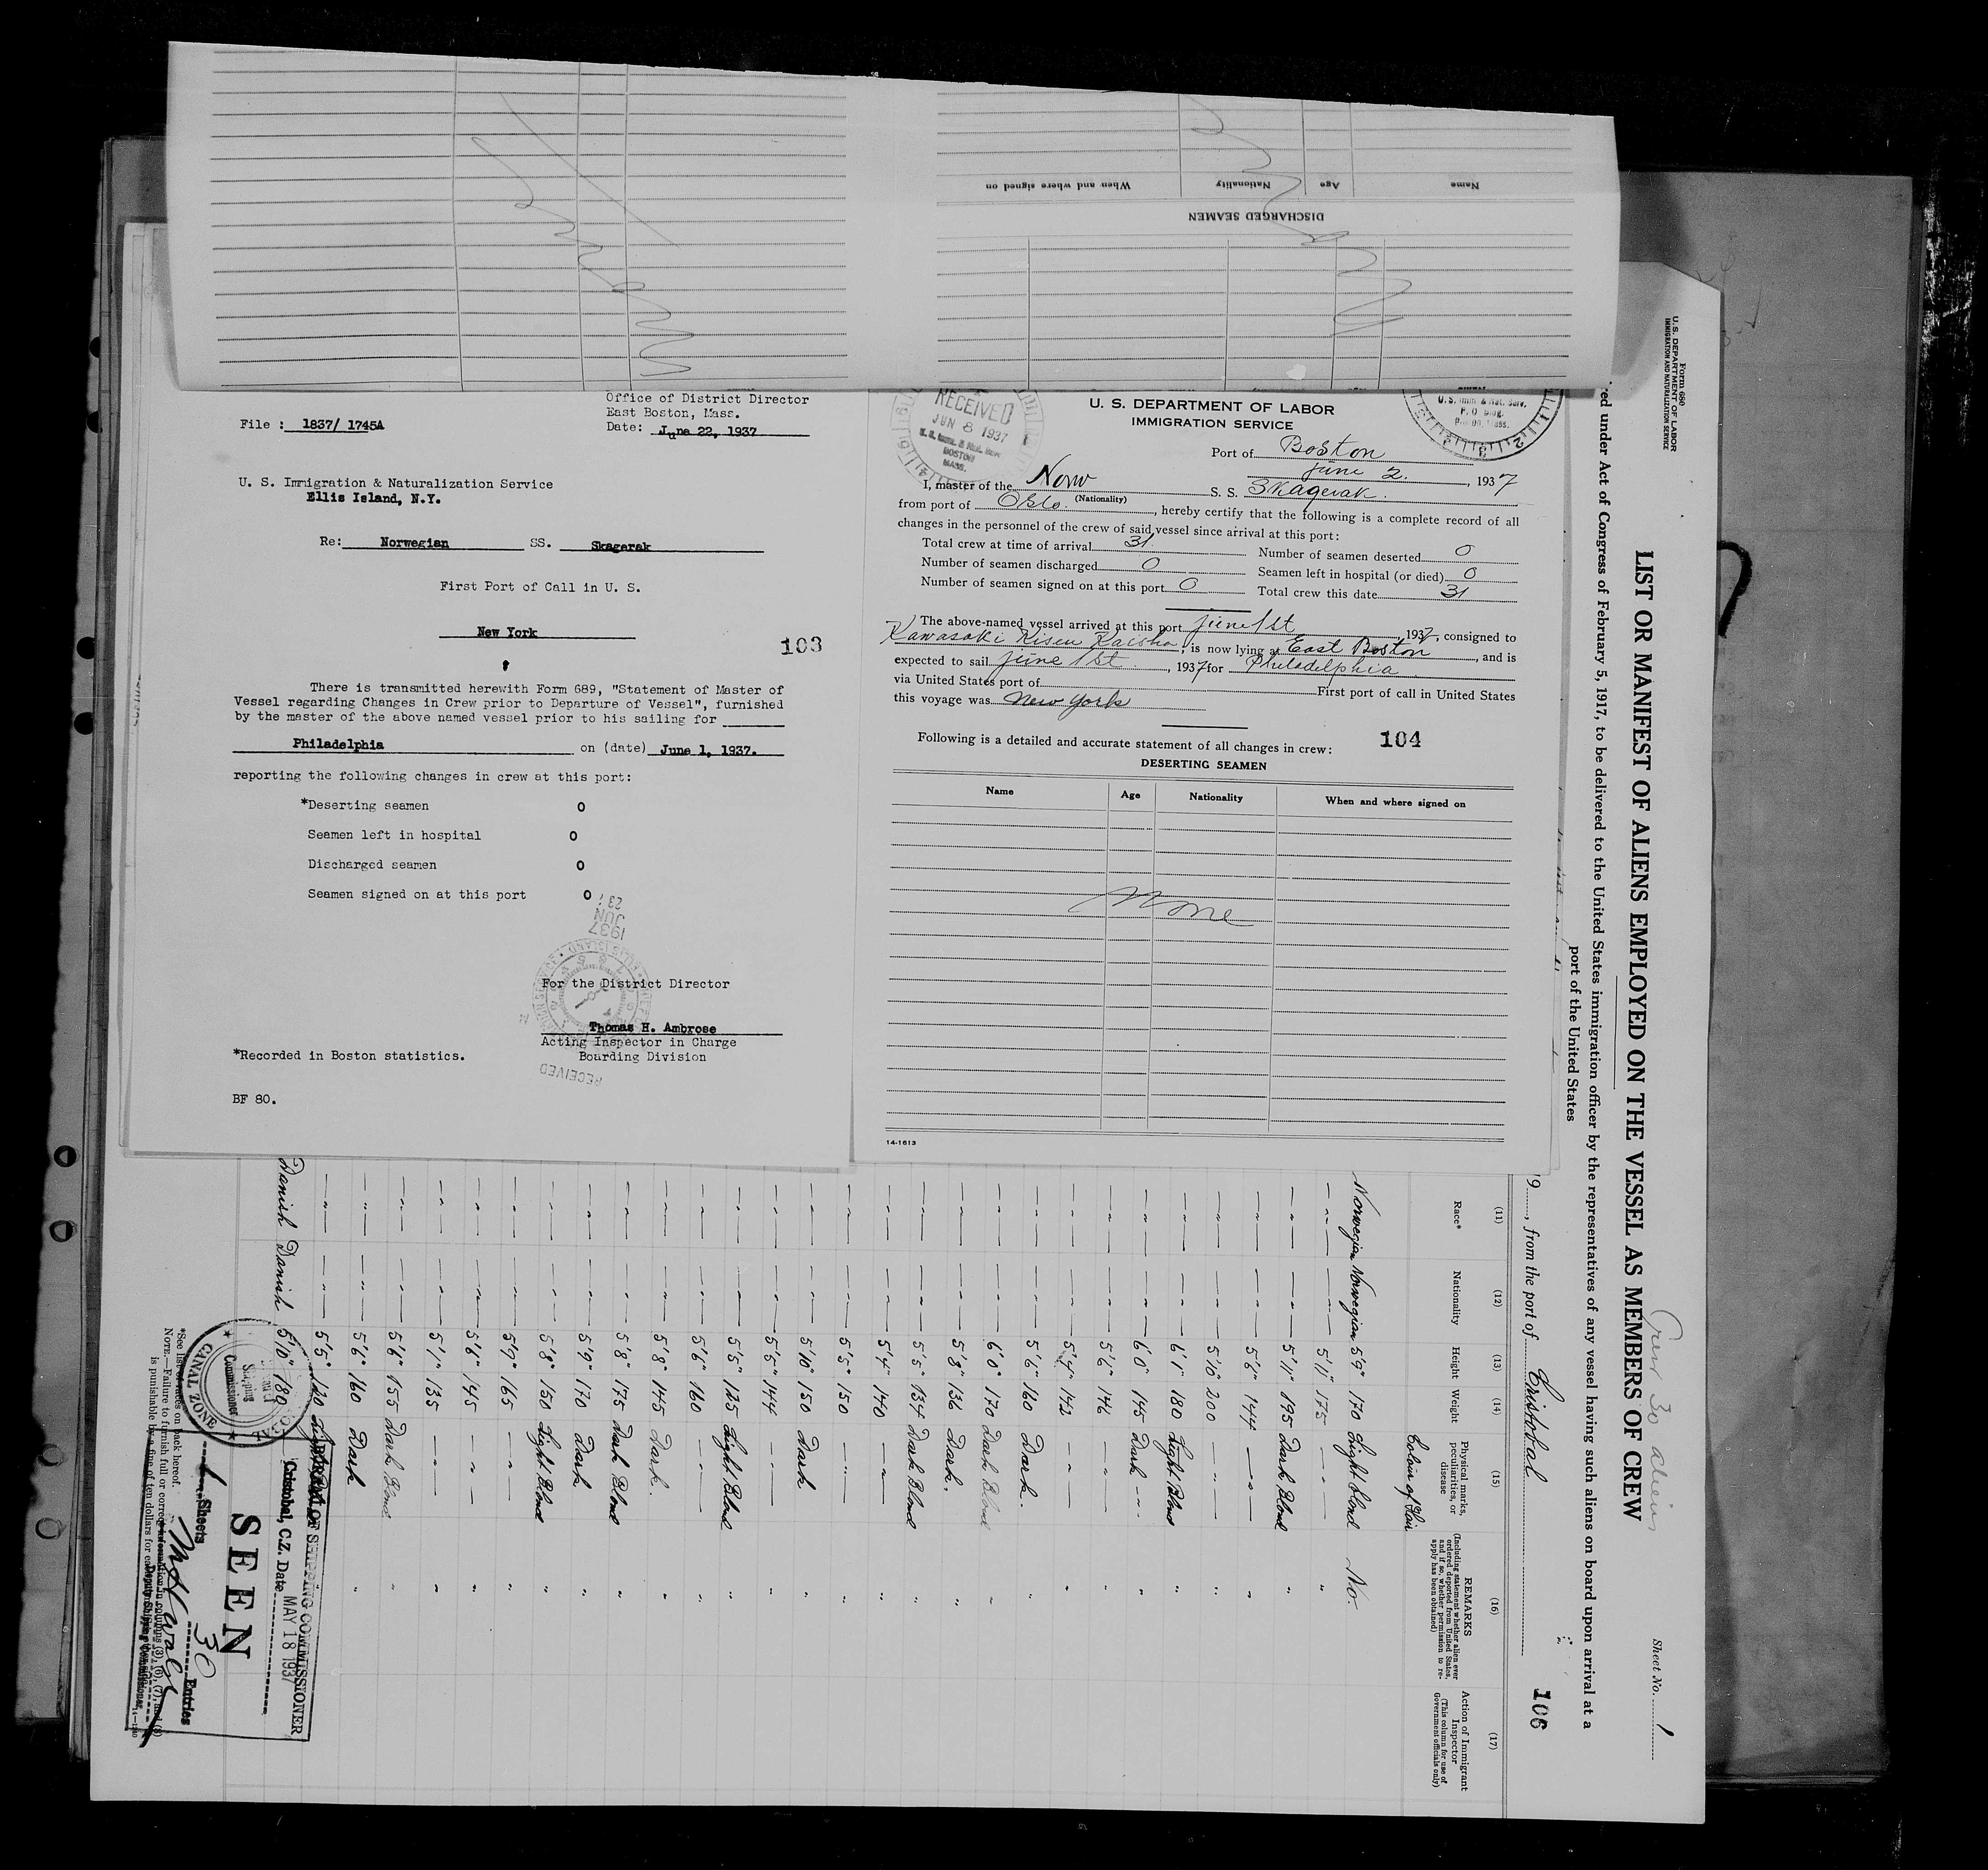 Name Age Nationality When and where signed on
DISCHARGED SEAMEN
File : 1837/ 1745A
Office of District Director
East Boston, Mass.
Date: June 22, 1937
U. S. Immigration & Naturalization Service
Ellis Island, N.Y.
Re: Norwegian SS. Skagerak
First Port of Call in U. S.
New York
103
There is transmitted herewith Form 689, "Statement of Master of
Vessel regarding Changes in Crew prior to Departure of Vessel", furnished
by the master of the above named vessel prior to his sailing for
Philadelphia on (date) June 1, 1937.
reporting the following changes in crew at this port:
*Deserting seamen 0
Seamen left in hospital 0
Discharged seamen 0
Seamen signed on at this port 0
1937
JUN
23
For the District Director
Thomas H. Ambrose
Acting Inspector in Charge
Boarding Division
RECEIVED
*Recorded in Boston statistics.
BF 80.
RECEIVED
JUN 8 1937
BOSTON
MASS.
U. S. Imm. & Nat. Serv.
P. O. Bldg.
U. S. DEPARTMENT OF LABOR
IMMIGRATION SERVICE
Port of Boston
June 2. , 1937
I, master of the Norw S. S. Skagerak.
(Nationality)
from port of Oslo. , hereby certify that the following is a complete record of all
changes in the personnel of the crew of said vessel since arrival at this port:
Total crew at time of arrival 31 Number of seamen deserted 0
Number of seamen discharged 0 Seamen left in hospital (or died) 0
Number of seamen signed on at this port 0 Total crew this date 31
The above-named vessel arrived at this port June 1st , 1937, consigned to
Kawasaki Kisen Kaisha, is now lying at East Boston , and is
expected to sail June 1st , 1937 for Philadelphia
via United States port of First port of call in United States
this voyage was New York
Following is a detailed and accurate statement of all changes in crew: 104
DESERTING SEAMEN
Name Age Nationality When and where signed on
None
14-1613
Form 680
U. S. DEPARTMENT OF LABOR
IMMIGRATION AND NATURALIZATION SERVICE
Crew 30 aliens
Sheet No. 1
LIST OR MANIFEST OF ALIENS EMPLOYED ON THE VESSEL AS MEMBERS OF CREW
red under Act of Congress of February 5, 1917, to be delivered to the United States immigration officer by the representatives of any vessel having such aliens on board upon arrival at a
port of the United States
19 , from the port of Cristobal
106
(11) (12) (13) (14) (15) (16) (17)
Race* Nationality Height Weight Physical marks, peculiarities, or disease
REMARKS
(Including statement whether alien ever
ordered deported from United States,
and if so, whether permission to re-
apply has been obtained)
Action of Immigrant
Inspector
(This column for use of
Government officials only)
Colour of Hair
Norwegian Norwegian 5'9" 170 Light blond No.
5'11" 175 "
5'11" 195 Dark Blond "
5'6" 144 "
5'10" 200 "
6'1" 180 Light Blond "
6'0" 145 Dark "
5'6" 146 "
5'4" 142 "
5'6" 160 Dark. "
6'0" 170 Dark Blond "
5'8" 136 Dark. "
5'5" 134 Dark Blond "
5'4" 140 "
5'5" 150 "
5'10" 150 Dark "
5'5" 144 "
5'5" 125 Light Blond "
5'6" 160 "
5'8" 145 Dark. "
5'8" 175 Dark Blond "
5'9" 170 Dark "
5'8" 150 Light Blond "
5'7" 165 "
5'6" 145 "
5'1" 135 "
5'6" 155 Dark Blond "
5'6" 160 Dark "
5'5" 120
Danish Danish 5'10" 180
OF SHIPPING COMMISSIONER
Cristobal, C.Z. Date MAY 18 1937
SEEN
1 Sheets 30 Entries
Deputy Shipping Commissioner
Shipping
Commissioner
CANAL ZONE
*See list of races on back hereof.
NOTE.—Failure to furnish full or correct information in columns (3), (6), (7), and (8)
is punishable by a fine of ten dollars for